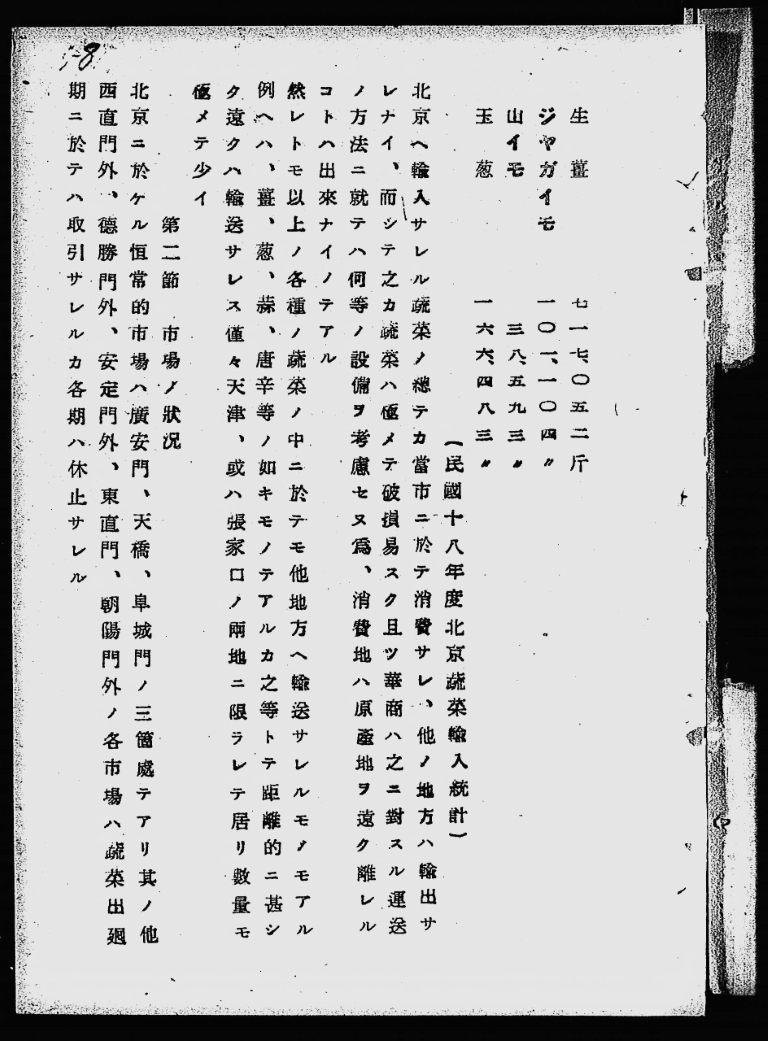 生薑　七一七、〇五二斤
ジャガイモ　一〇一、一〇四〃
山イモ　三八、五九三〃
玉葱　一六六、四八三〃
（民國十八年度北京蔬菜輸入統計）
北京ヘ輸入サレル蔬菜ノ總テカ當市ニ於テ消費サレ、他ノ地方ハ輸出サ
レナイ、而シテ之カ蔬菜ハ極メテ破損易スク且ツ華商ハ之ニ對スル運送
ノ方法ニ就テハ何等ノ設備ヲ考慮セヌ爲、消費地ハ原產地ヲ遠ク離レル
コトハ出來ナイノテアル
然レトモ以上ノ各種ノ蔬菜ノ中ニ於テモ他地方ヘ輸送サレルモノモアル
例ヘハ、薑、葱、蒜、唐辛等ノ如キモノテアルカ之等トテ距離的ニ甚シ
ク遠クハ輸送サレス僅々天津、或ハ張家口ノ兩地ニ限ラレテ居リ數量モ
極メテ少イ
第二節　市場ノ狀况
北京ニ於ケル恒常的市場ハ廣安門、天橋、阜城門ノ三箇處テアリ其ノ他
西直門外、德勝門外、安定門外、東直門、朝陽門外ノ各市場ハ蔬菜出廻
期ニ於テハ取引サレルカ各期ハ休止サレル